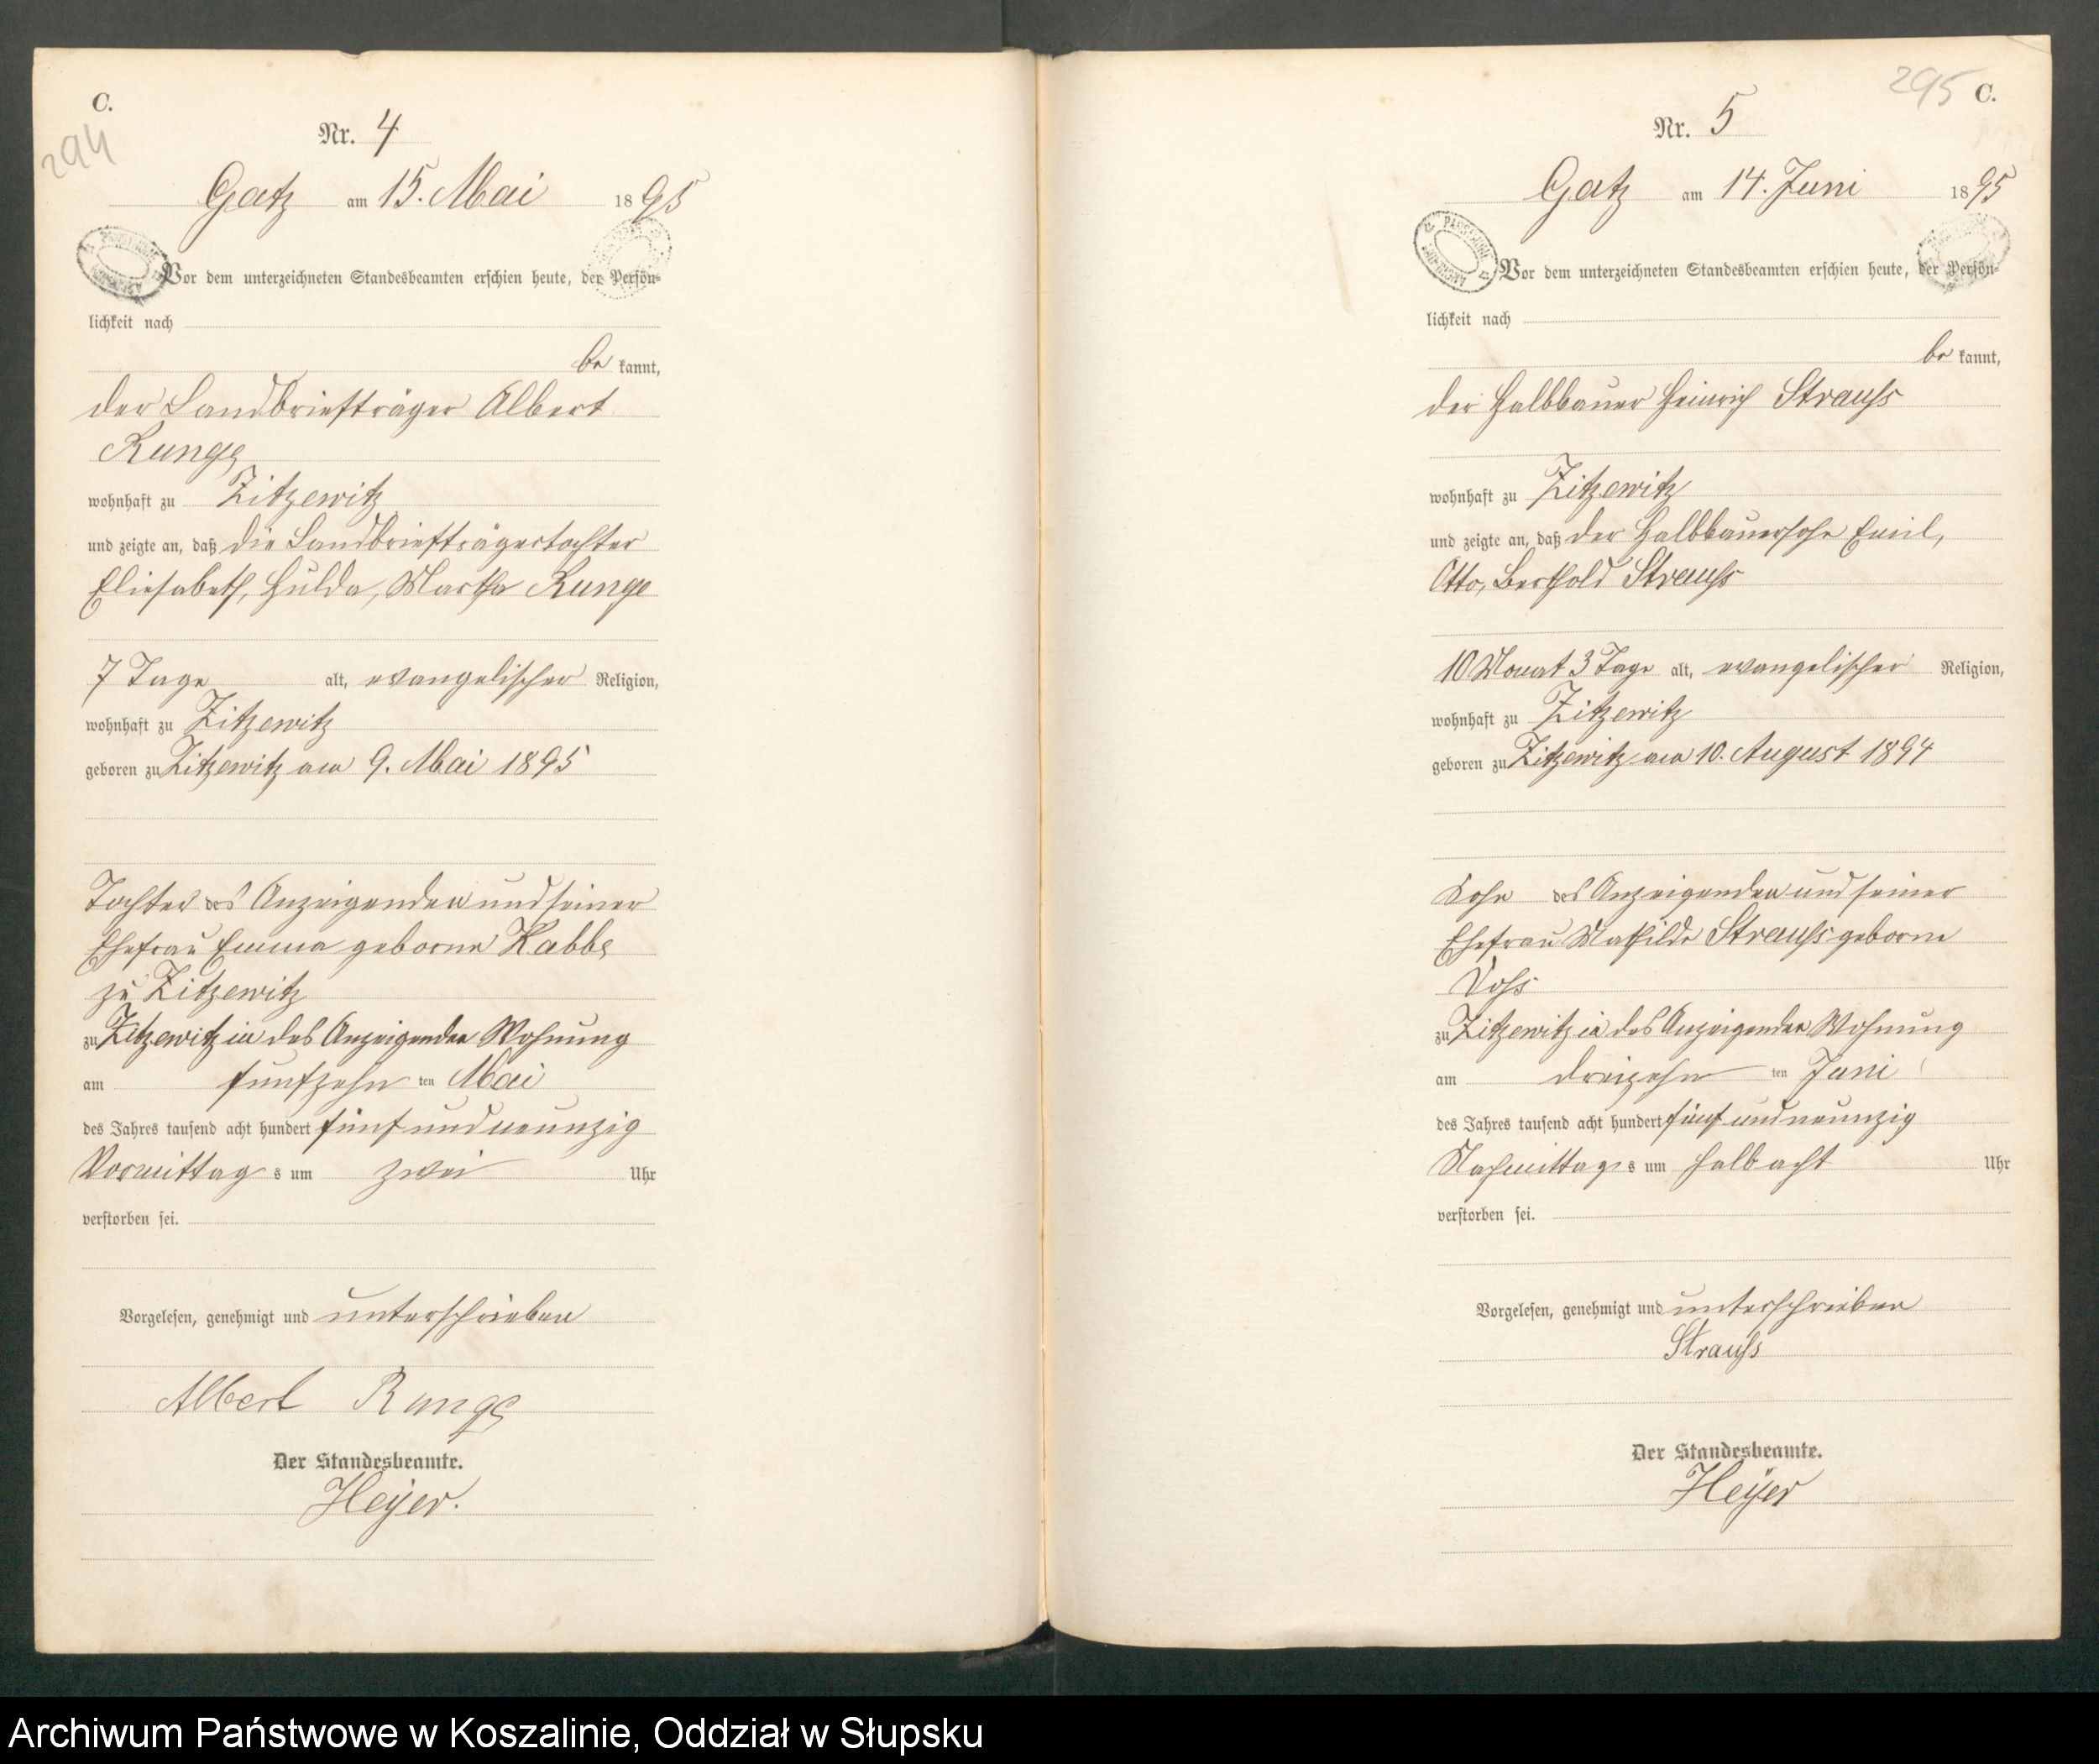 C.
294
Nr. 4
Gatz am 15. Mai 1895
Vor dem unterzeichneten Standesbeamten erschien heute, der Persön-
lichkeit nach
be kannt,
der Landbriefträger Albert
Runge
wohnhaft zu Zitzewitz
und zeigte an, daß die Landbriefträgertochter
Eliesabeth, Hulda, Martha Runge
7 Tage alt, evangelischer Religion,
wohnhaft zu Zitzewitz
geboren zu Zitzewitz am 9. Mai 1895
Tochter des Anzeigenden und seiner
Ehefrau Emma geborne Kabbe
zu Zitzewitz
zu Zitzewitz in des Anzeigenden Wohnung
am fünfzehn ten Mai
des Jahres tausend acht hundert fünf und neunzig
Vormittag s um zwei Uhr
verstorben sei.
Vorgelesen, genehmigt und unterschrieben
Albert Runge
Der Standesbeamte.
Heyer.
295 C.
Nr. 5
Gatz am 14. Juni 1895
Vor dem unterzeichneten Standesbeamten erschien heute, der Persön-
lichkeit nach
be kannt,
der Halbbauer Heinrich Strauß
wohnhaft zu Zitzewitz
und zeigte an, daß der Halbbauersohn Emil,
Otto, Berthold Strauß
10 Monat 3 Tage alt, evangelischer Religion,
wohnhaft zu Zitzewitz
geboren zu Zitzewitz am 10. August 1894
Sohn des Anzeigenden und seiner
Ehefrau Mathilde Strauß geborne
Voß
zu Zitzewitz in des Anzeigenden Wohnung
am dreizehn ten Juni
des Jahres tausend acht hundert fünf und neunzig
Nachmittags s um halb acht Uhr
verstorben sei.
Vorgelesen, genehmigt und unterschrieben
Strauß
Der Standesbeamte.
Heyer
Archiwum Państwowe w Koszalinie, Oddział w Słupsku